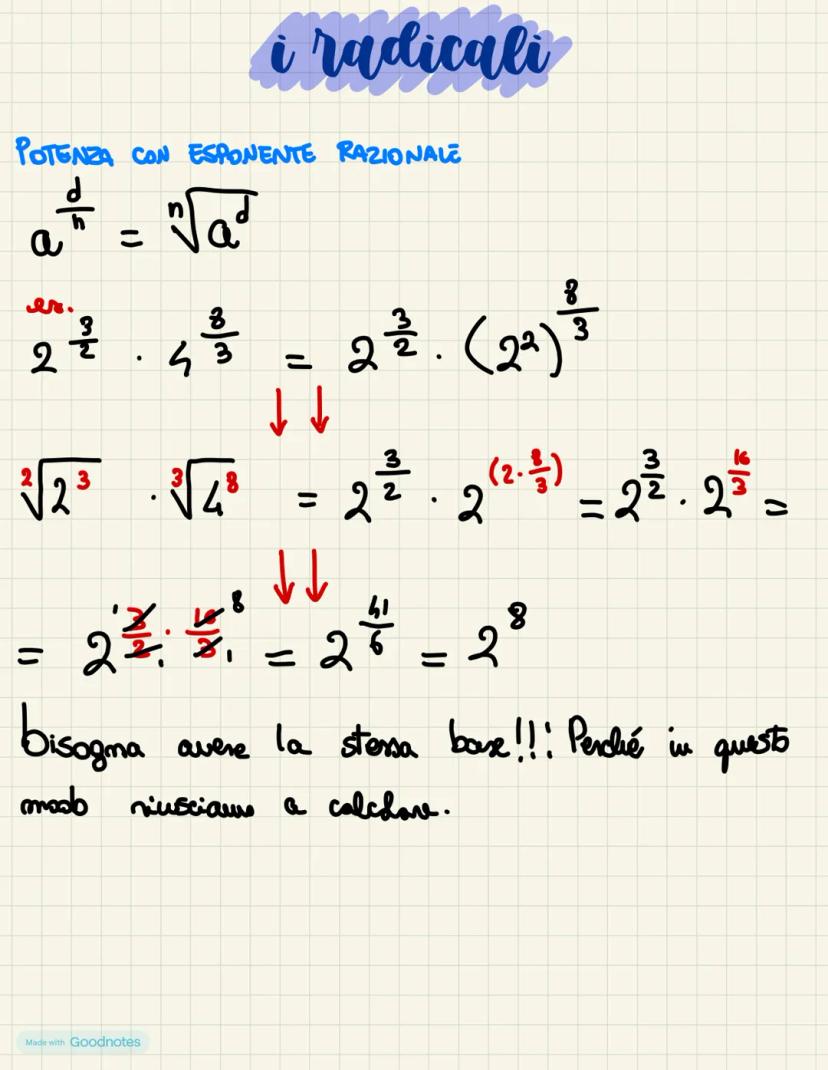 i radicali
POTENZA CON ESPONENTE RAZIONALE
a^(d/n) = ⁿ√(a^d)
es.
2^(3/2) · 4^(8/3) = 2^(3/2) · (2²)^(8/3)
²√(2³) · ³√(4⁸) = 2^(3/2) · 2^(2·8/3) = 2^(3/2) · 2^(16/3) =
= 2^(3/2 · 16/3) 1 1 8 1 = 2^(41/6) = 2⁸
bisogna avere la stessa base!!! Perché in questo
modo riusciamo a calcolare.
Made with Goodnotes